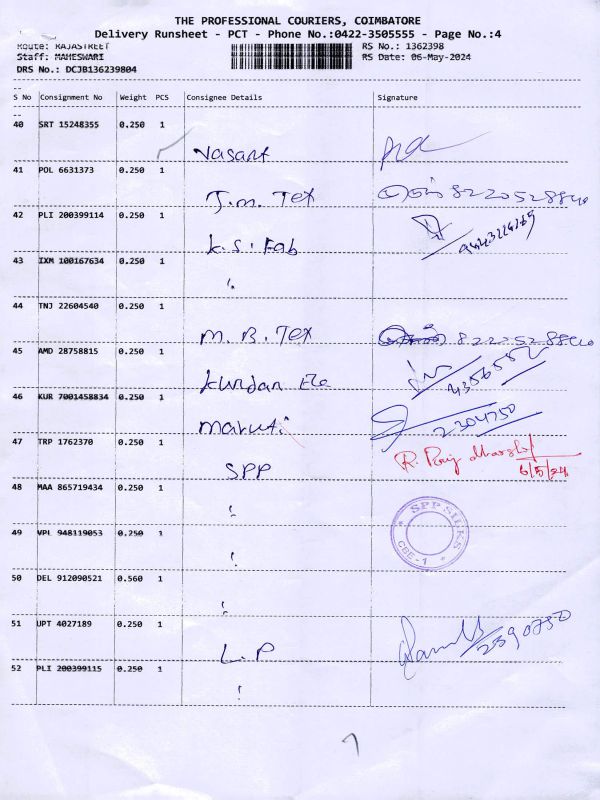 THE PROFESSIONAL COURIERS, COIMBATORE
Delivery Runsheet - PCT - Phone No.:0422-3505555 - Page No.:4
Route: RAJASTREET RS No.: 1362398
Staff: MAHESWARI RS Date: 06-May-2024
DRS No.: DCJB136239804
--
S No Consignment No Weight PCS Consignee Details Signature
--
40 SRT 15248355 0.250 1
Vasant
41 POL 6631373 0.250 1
J.m. Tex 8220528840
42 PLI 200399114 0.250 1
K.S. Fab
43 IXM 100167634 0.250 1
"
44 TNJ 22604540 0.250 1
M. B. Tex 8220528840
45 AMD 28758815 0.250 1
Kundan
46 KUR 7001458834 0.250 1
Maruti 2304750
47 TRP 1762370 0.250 1
SPP 6/5/24
48 MAA 865719434 0.250 1
"
SPP SILKS
CBE-1
49 VPL 948119053 0.250 1
"
50 DEL 912090521 0.560 1
"
51 UPT 4027189 0.250 1
L.P 2390730
52 PLI 200399115 0.250 1
"